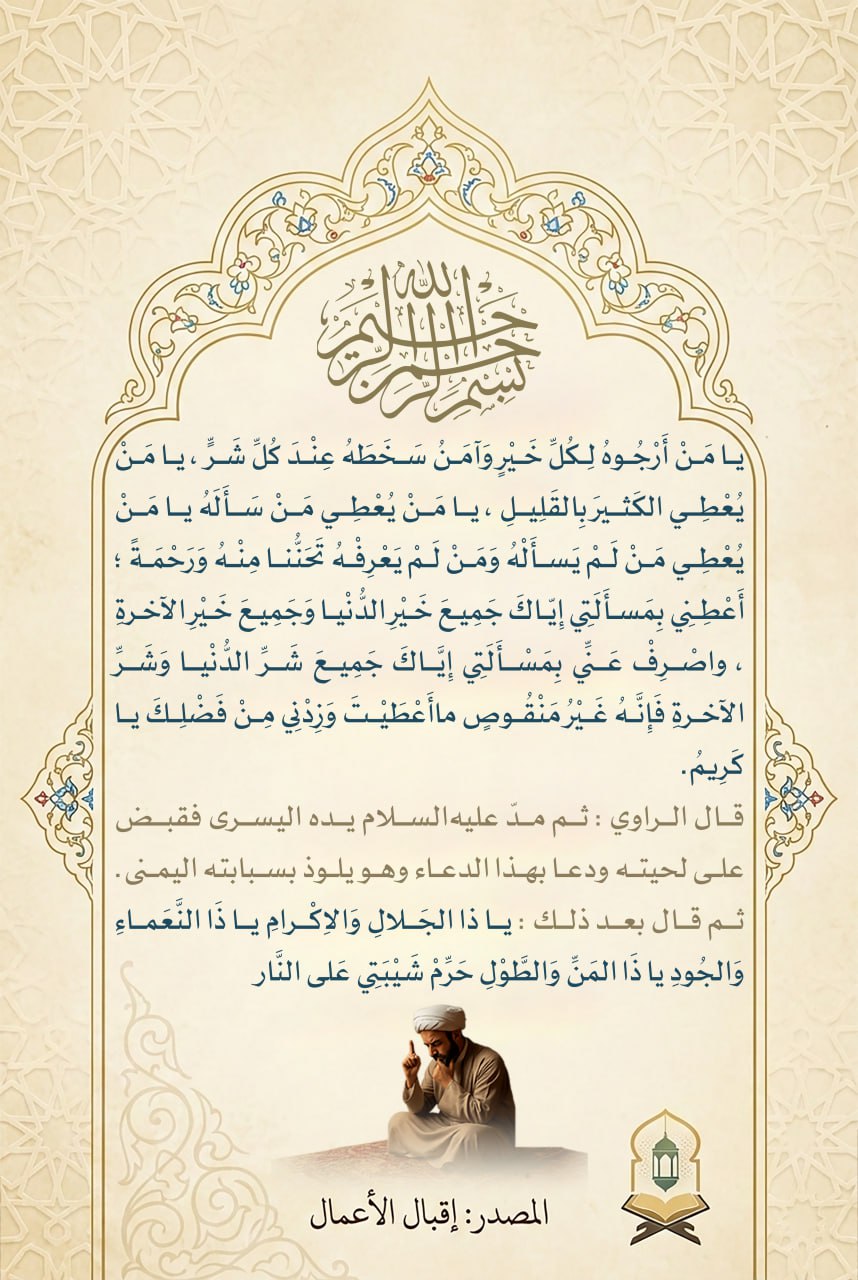 بِسْمِ اللهِ الرَّحْمنِ الرَّحِيمِ
يا مَنْ أَرْجُوهُ لِكُلِّ خَيْرٍ وَآمَنُ سَخَطَهُ عِنْدَ كُلِّ شَرٍّ ، يا مَنْ
يُعْطِي الكَثيرَ بِالقَلِيلِ ، يا مَنْ يُعْطِي مَنْ سَأَلَهُ يا مَنْ
يُعْطِي مَنْ لَمْ يَسأَلْهُ وَمَنْ لَمْ يَعْرِفْهُ تَحَنُّنا مِنْهُ وَرَحْمَةً ؛
أَعْطِنِي بِمَسأَلَتِي إِيّاكَ جَمِيعَ خَيْرِ الدُّنْيا وَجَمِيعَ خَيْرِ الآخرةِ
، واصْرِفْ عَنِّي بِمَسْأَلَتِي إِيَّاكَ جَمِيعَ شَرِّ الدُّنْيا وَشَرِّ
الآخرةِ فَإِنَّهُ غَيْرُ مَنْقُوصٍ ماأَعْطَيْتَ وَزِدْنِي مِنْ فَضْلِكَ يا
كَرِيمُ.
قال الراوي : ثم مدّ عليه السلام يده اليسرى فقبض
على لحيته ودعا بهذا الدعاء وهو يلوذ بسبابته اليمنى.
ثم قال بعد ذلك : يا ذا الجَلالِ وَالاِكْرامِ يا ذَا النَّعَماءِ
وَالجُودِ يا ذَا المَنِّ وَالطَّوْلِ حَرِّمْ شَيْبَتِي عَلى النَّار
المصدر: إقبال الأعمال